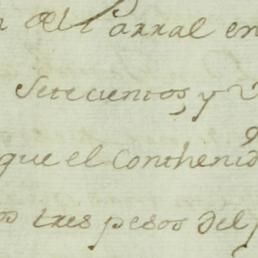 del Parral en
Setecientos, y
que el Conthenid
tres pesos del